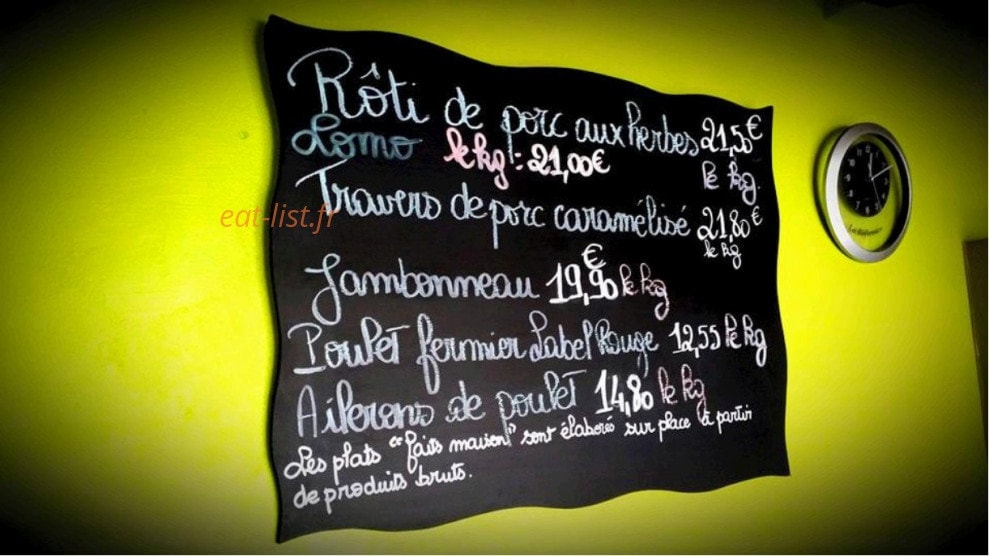 Rôti de porc aux herbes 21,50€
le kg.
Lomo le kg : 21,00€
Travers de porc caramélisé 21,80€
le kg
Jambonneau 19,90€ le kg
Poulet fermier Label Rouge 12,55 le kg
Ailerons de poulet 14,80 le kg
Les plats "faits maison" sont élaborés sur place à partir
de produits bruts.
eat-list.fr
12